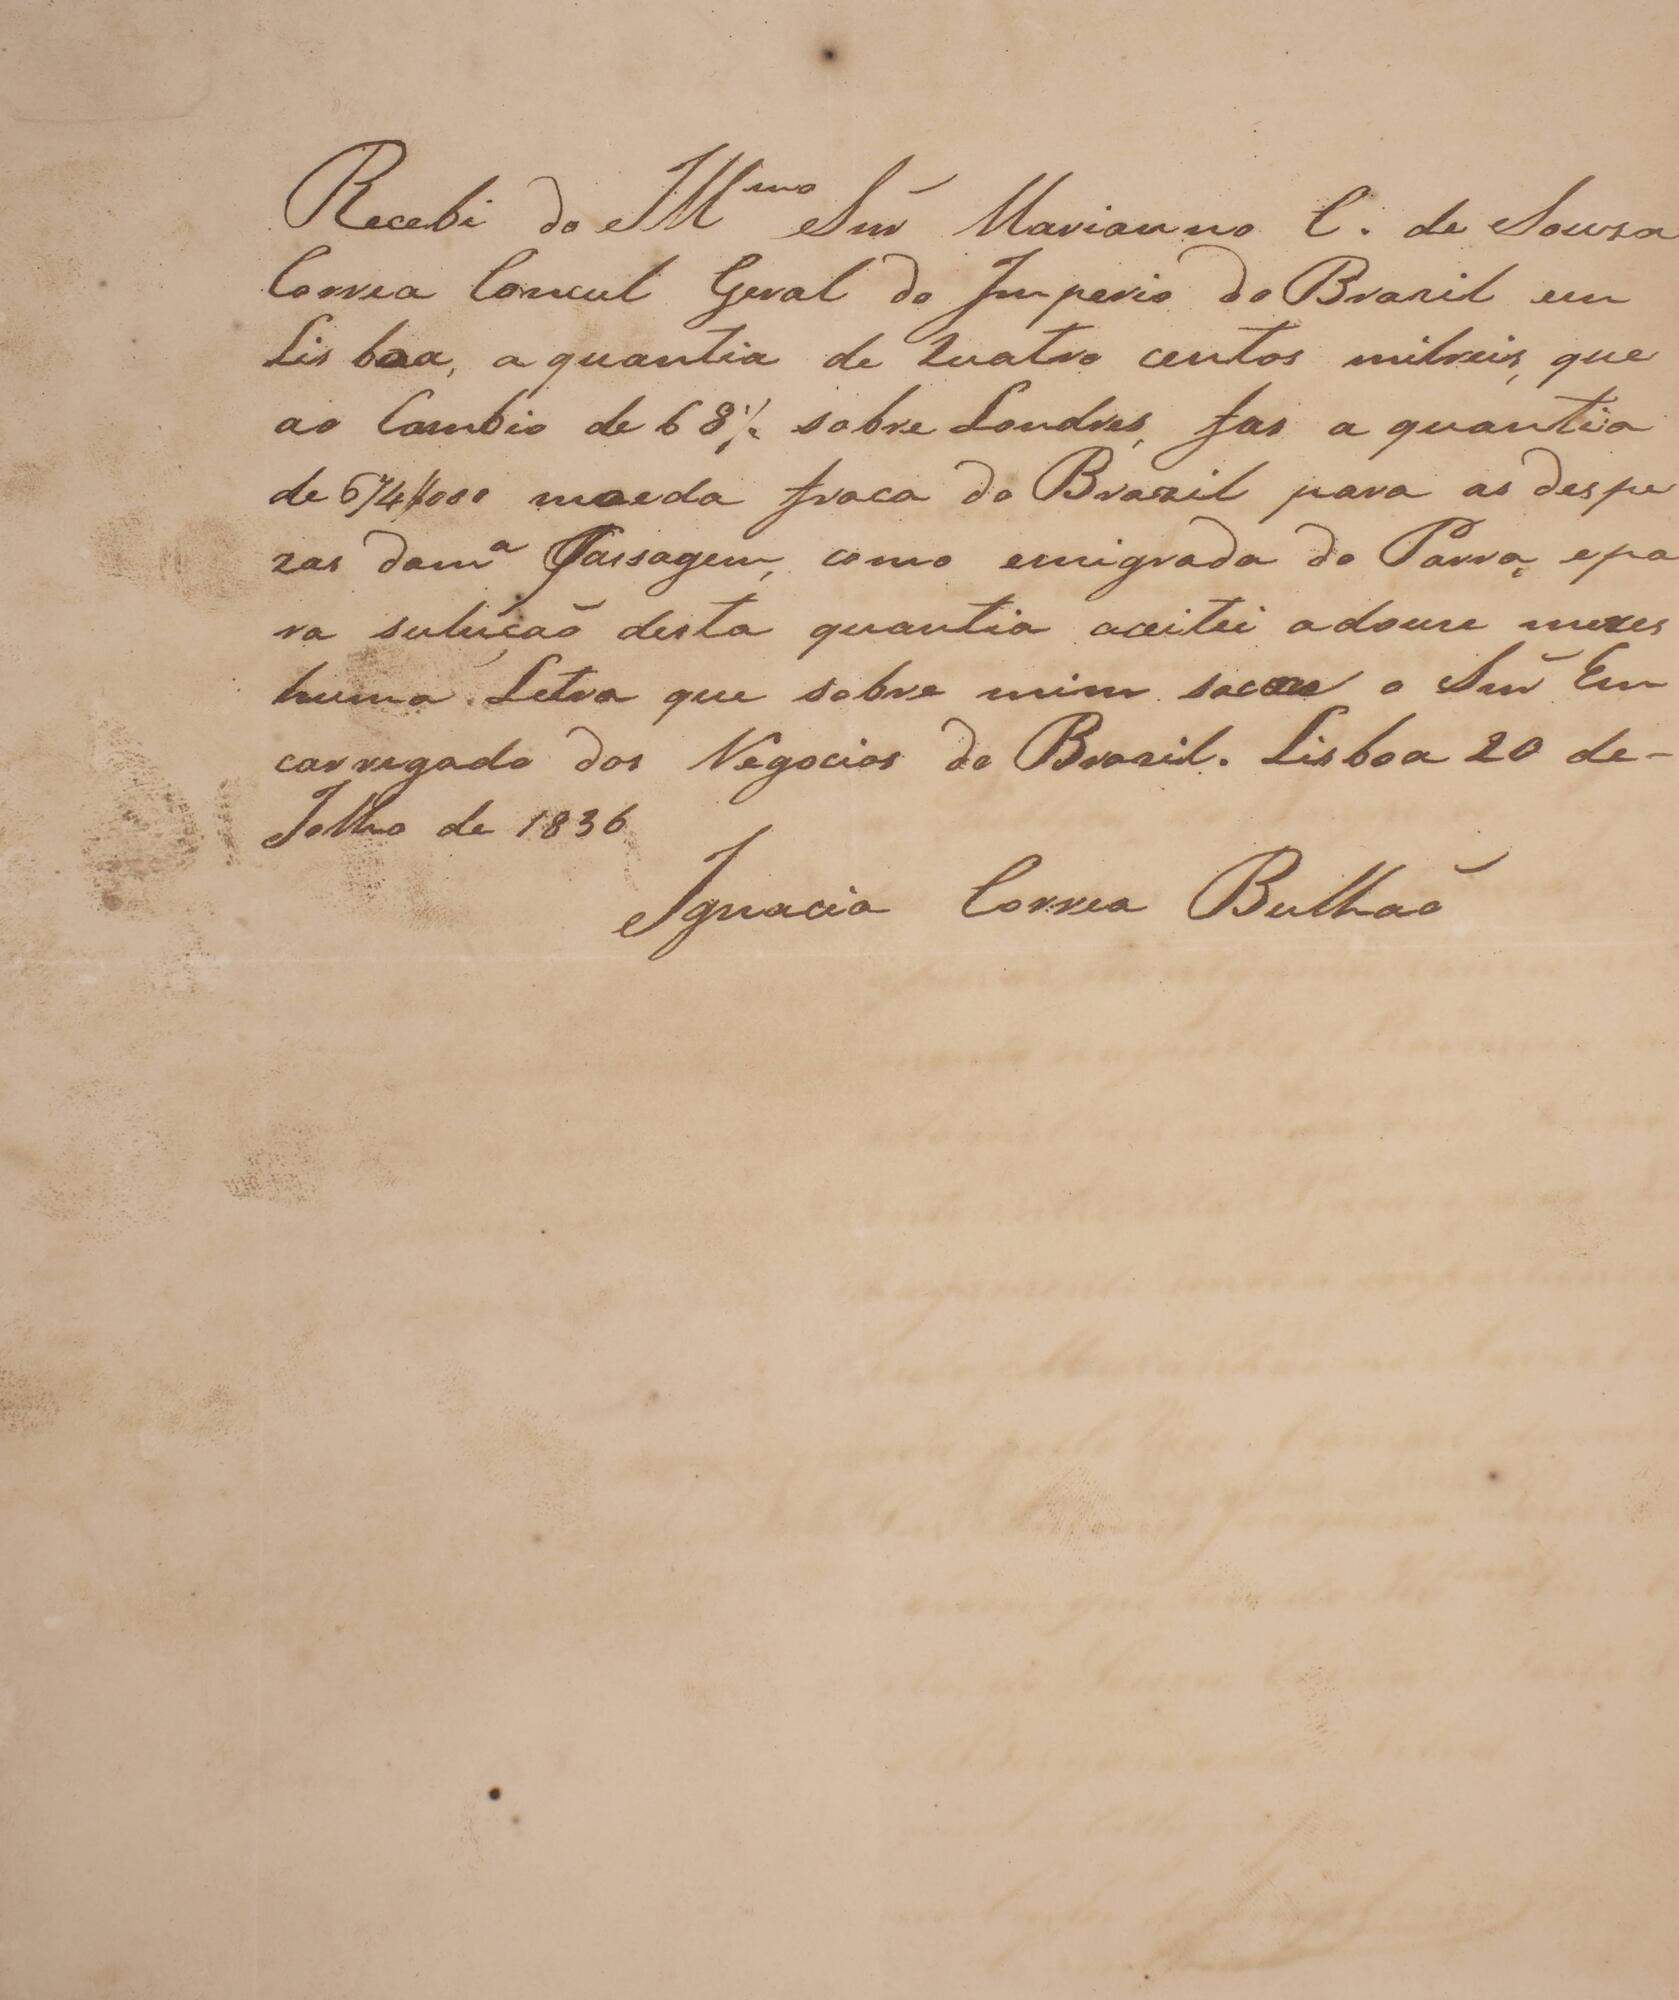 Recebi do Illmo Snr Marianno C. de Sousa
Correa Concul Geral do Imperio do Brazil em
Lisboa, a quantia de quatro centos milreis, que
ao Cambio de 68½ sobre Londres, fas a quantia
de 674//000 moeda fraca do Brazil para as despe
zas dama Passagem, como emigrada do Parra, epa
ra suluçaõ desta quantia aceitei adouse mezes
huma Letra que sobre mim sacou o Snr En
carregado dos Negocios do Brazil. Lisboa 20 de-
Jolho de 1836
Ignacia Correa Bulhaõ